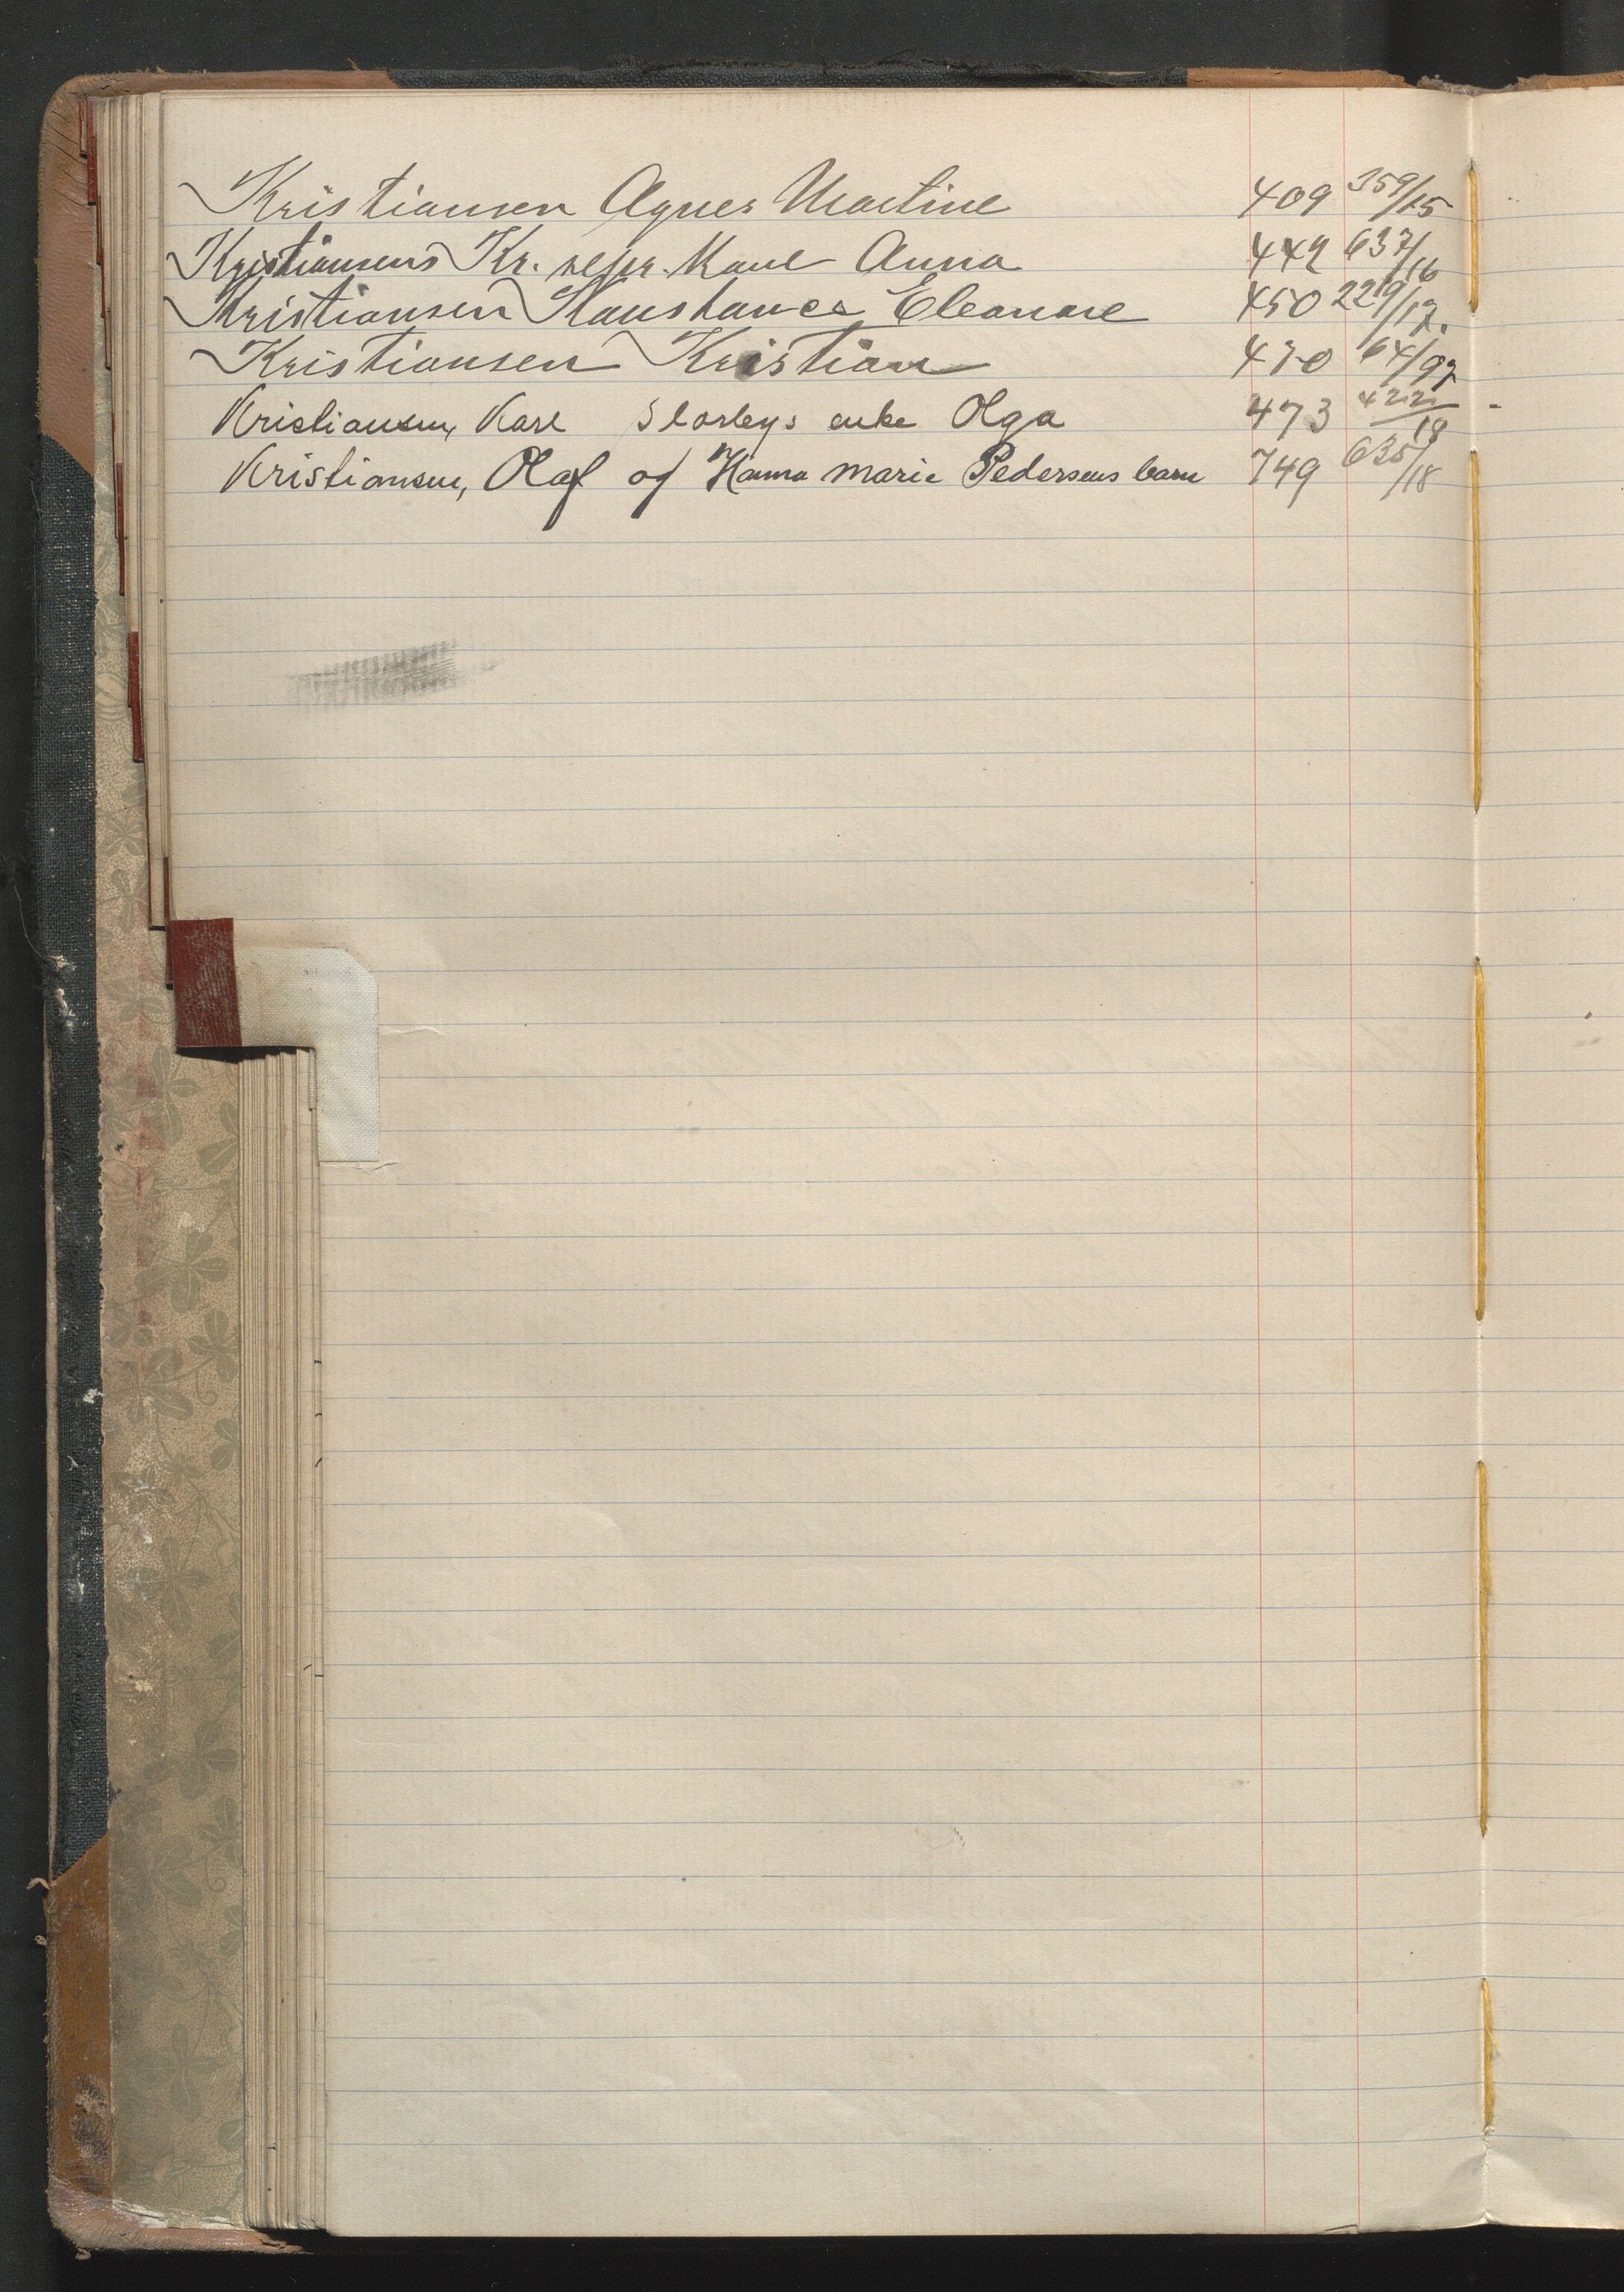 Kristiansen Agnes Martine 409 359/15
Kristiansens Kr. Kone Anna 449 637/16
Kristiansen Konstance Eleonore 450 229/17.
Kristiansen Kristian 470 64/97
Kristiansen, Karl Storleys enke Olga 473 422/18
Kristiansen, Olaf og Hanna Marie Pedersens barn 749 635/18